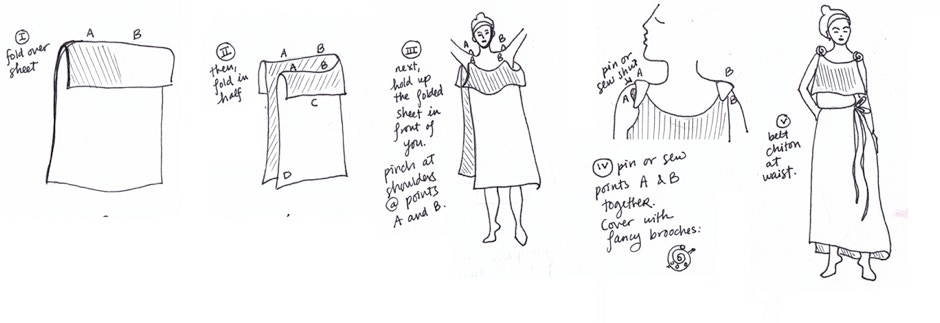 I
fold over
sheet
A B
II
then,
fold in
half
A B
A B
C
D
III
next,
hold up
the folded
sheet in
front of
you.
pinch at
shoulders
@ points
A and B.
A B
A B
pin or
sew shut
A B
A B
IV pin or sew
points A & B
together.
Cover with
fancy brooches:
V
belt
chiton
at
waist.